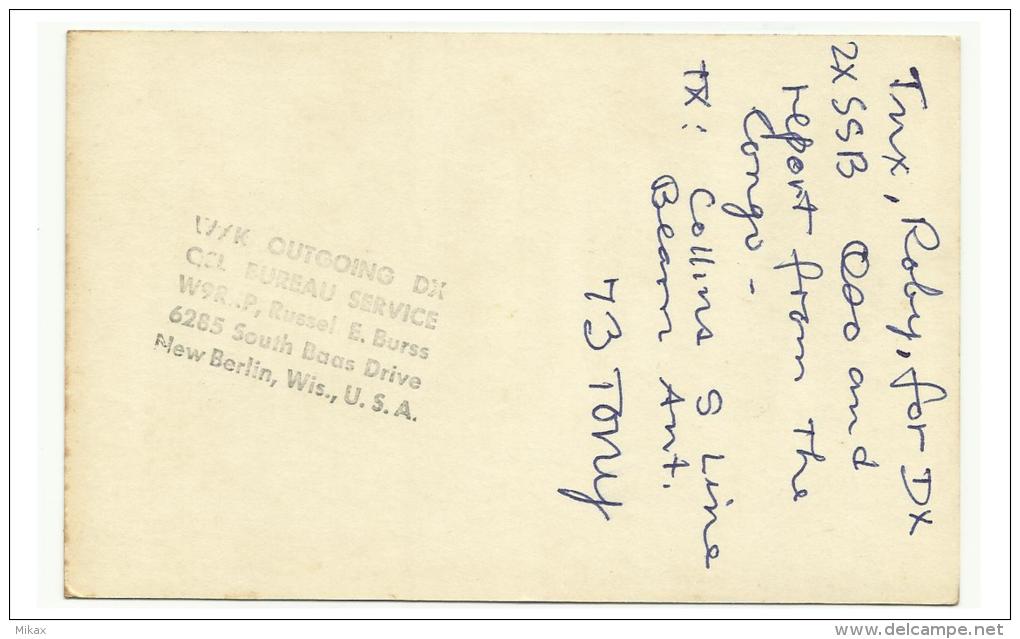 Tnx, Roby, for DX
2XSSB QSO and
report from the
Congo -
TX: Collins S Line
Beam Ant.
73 Tony
OUTGOING DX
QSL BUREAU SERVICE
Russel E. Burss
6285 South Baas Drive
New Berlin, Wis., U. S. A.
Mikax
delcampe.net